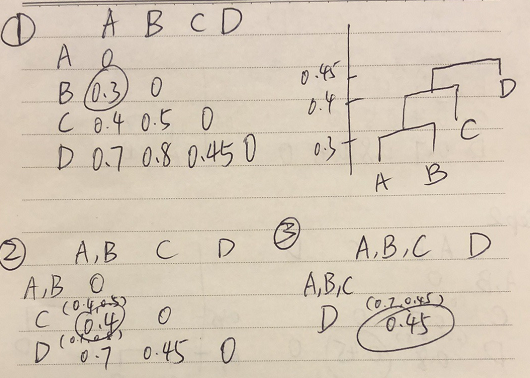 ① A B C D
A 0
B 0.3 0
C 0.4 0.5 0
D 0.7 0.8 0.45 0
0.45
0.4
0.3
D
C
A B
② A,B C D
A,B 0
(0.4, 0.5)
C 0.4 0
D 0.7 0.45 0
③ A,B,C D
A,B,C
(0.7, 0.45)
D 0.45